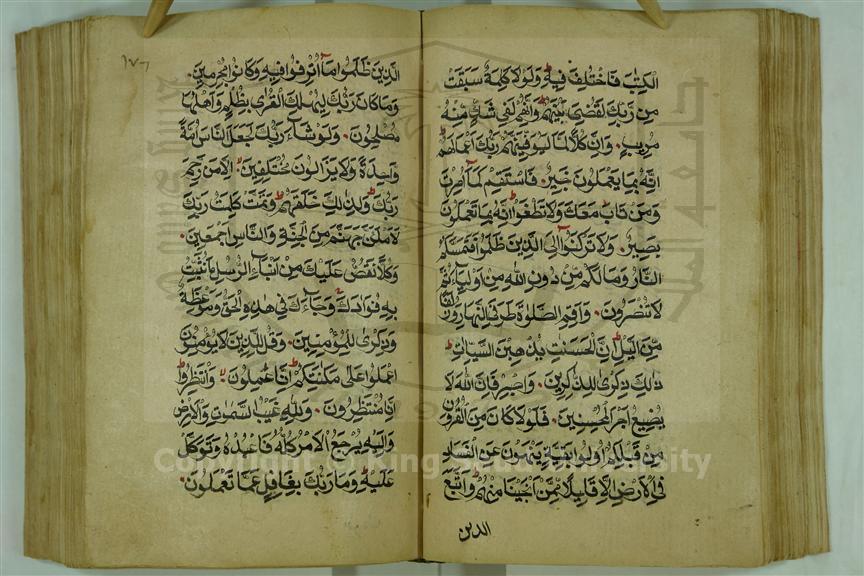 الكتب فاختلف فيه ولولا كلمة سبقت
من ربك لقضى بينهم وانهم لفي شك منه
مريب وان كلا لما ليوفينهم ربك اعمالهم
انه بما يعملون خبير فاستقم كما امرت
ومن تاب معك ولا تطغوا انه بما تعملون
بصير ولا تركنوا الى الذين ظلموا فتمسكم
النار وما لكم من دون الله من اولياء ثم
لا تنصرون واقم الصلوة طرفي النهار وزلفا
من اليل ان الحسنت يذهبن السيات
ذلك ذكرى للذاكرين واصبر فان الله لا
يضيع اجر المحسنين فلولا كان من القرون
من قبلكم اولوا بقية ينهون عن الفساد
في الارض الا قليلا ممن انجينا منهم واتبع
الذين
١٧٦
الذين ظلموا ما اترفوا فيه وكانوا مجرمين
وما كان ربك ليهلك القرى بظلم واهلها
مصلحون ولو شاء ربك لجعل الناس امة
واحدة ولا يزالون مختلفين الا من رحم
ربك ولذلك خلقهم وتمت كلمت ربك
لاملئن جهنم من الجنة والناس اجمعين
وكلا نقص عليك من انباء الرسل ما نثبت
به فؤادك وجاءك في هذه الحق وموعظة
وذكرى للمؤمنين وقل للذين لا يؤمنون
اعملوا على مكانتكم انا عملون وانتظروا
انا منتظرون ولله غيب السموت والارض
واليه يرجع الامر كله فاعبده وتوكل
عليه وما ربك بغافل عما تعملون